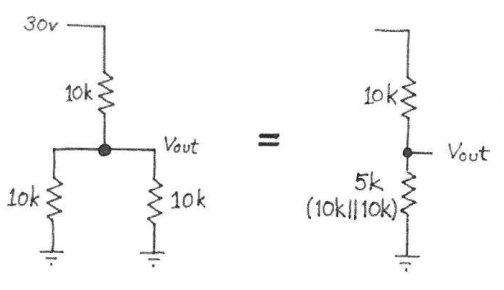 30v
10k
Vout
10k
10k
=
10k
Vout
5k
(10k||10k)